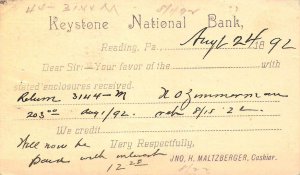 Keystone National Bank,
Reading, Pa., Augt 24 1892
Dear Sir:—Your favor of the with
stated enclosures received.
Return 3144-M H O Zimmerman
203 00 Aug 1/92. 8/15
We credit
Will now be Very Respectfully,
Paid with interest JNO. H. MALTZBERGER, Cashier.
12 20